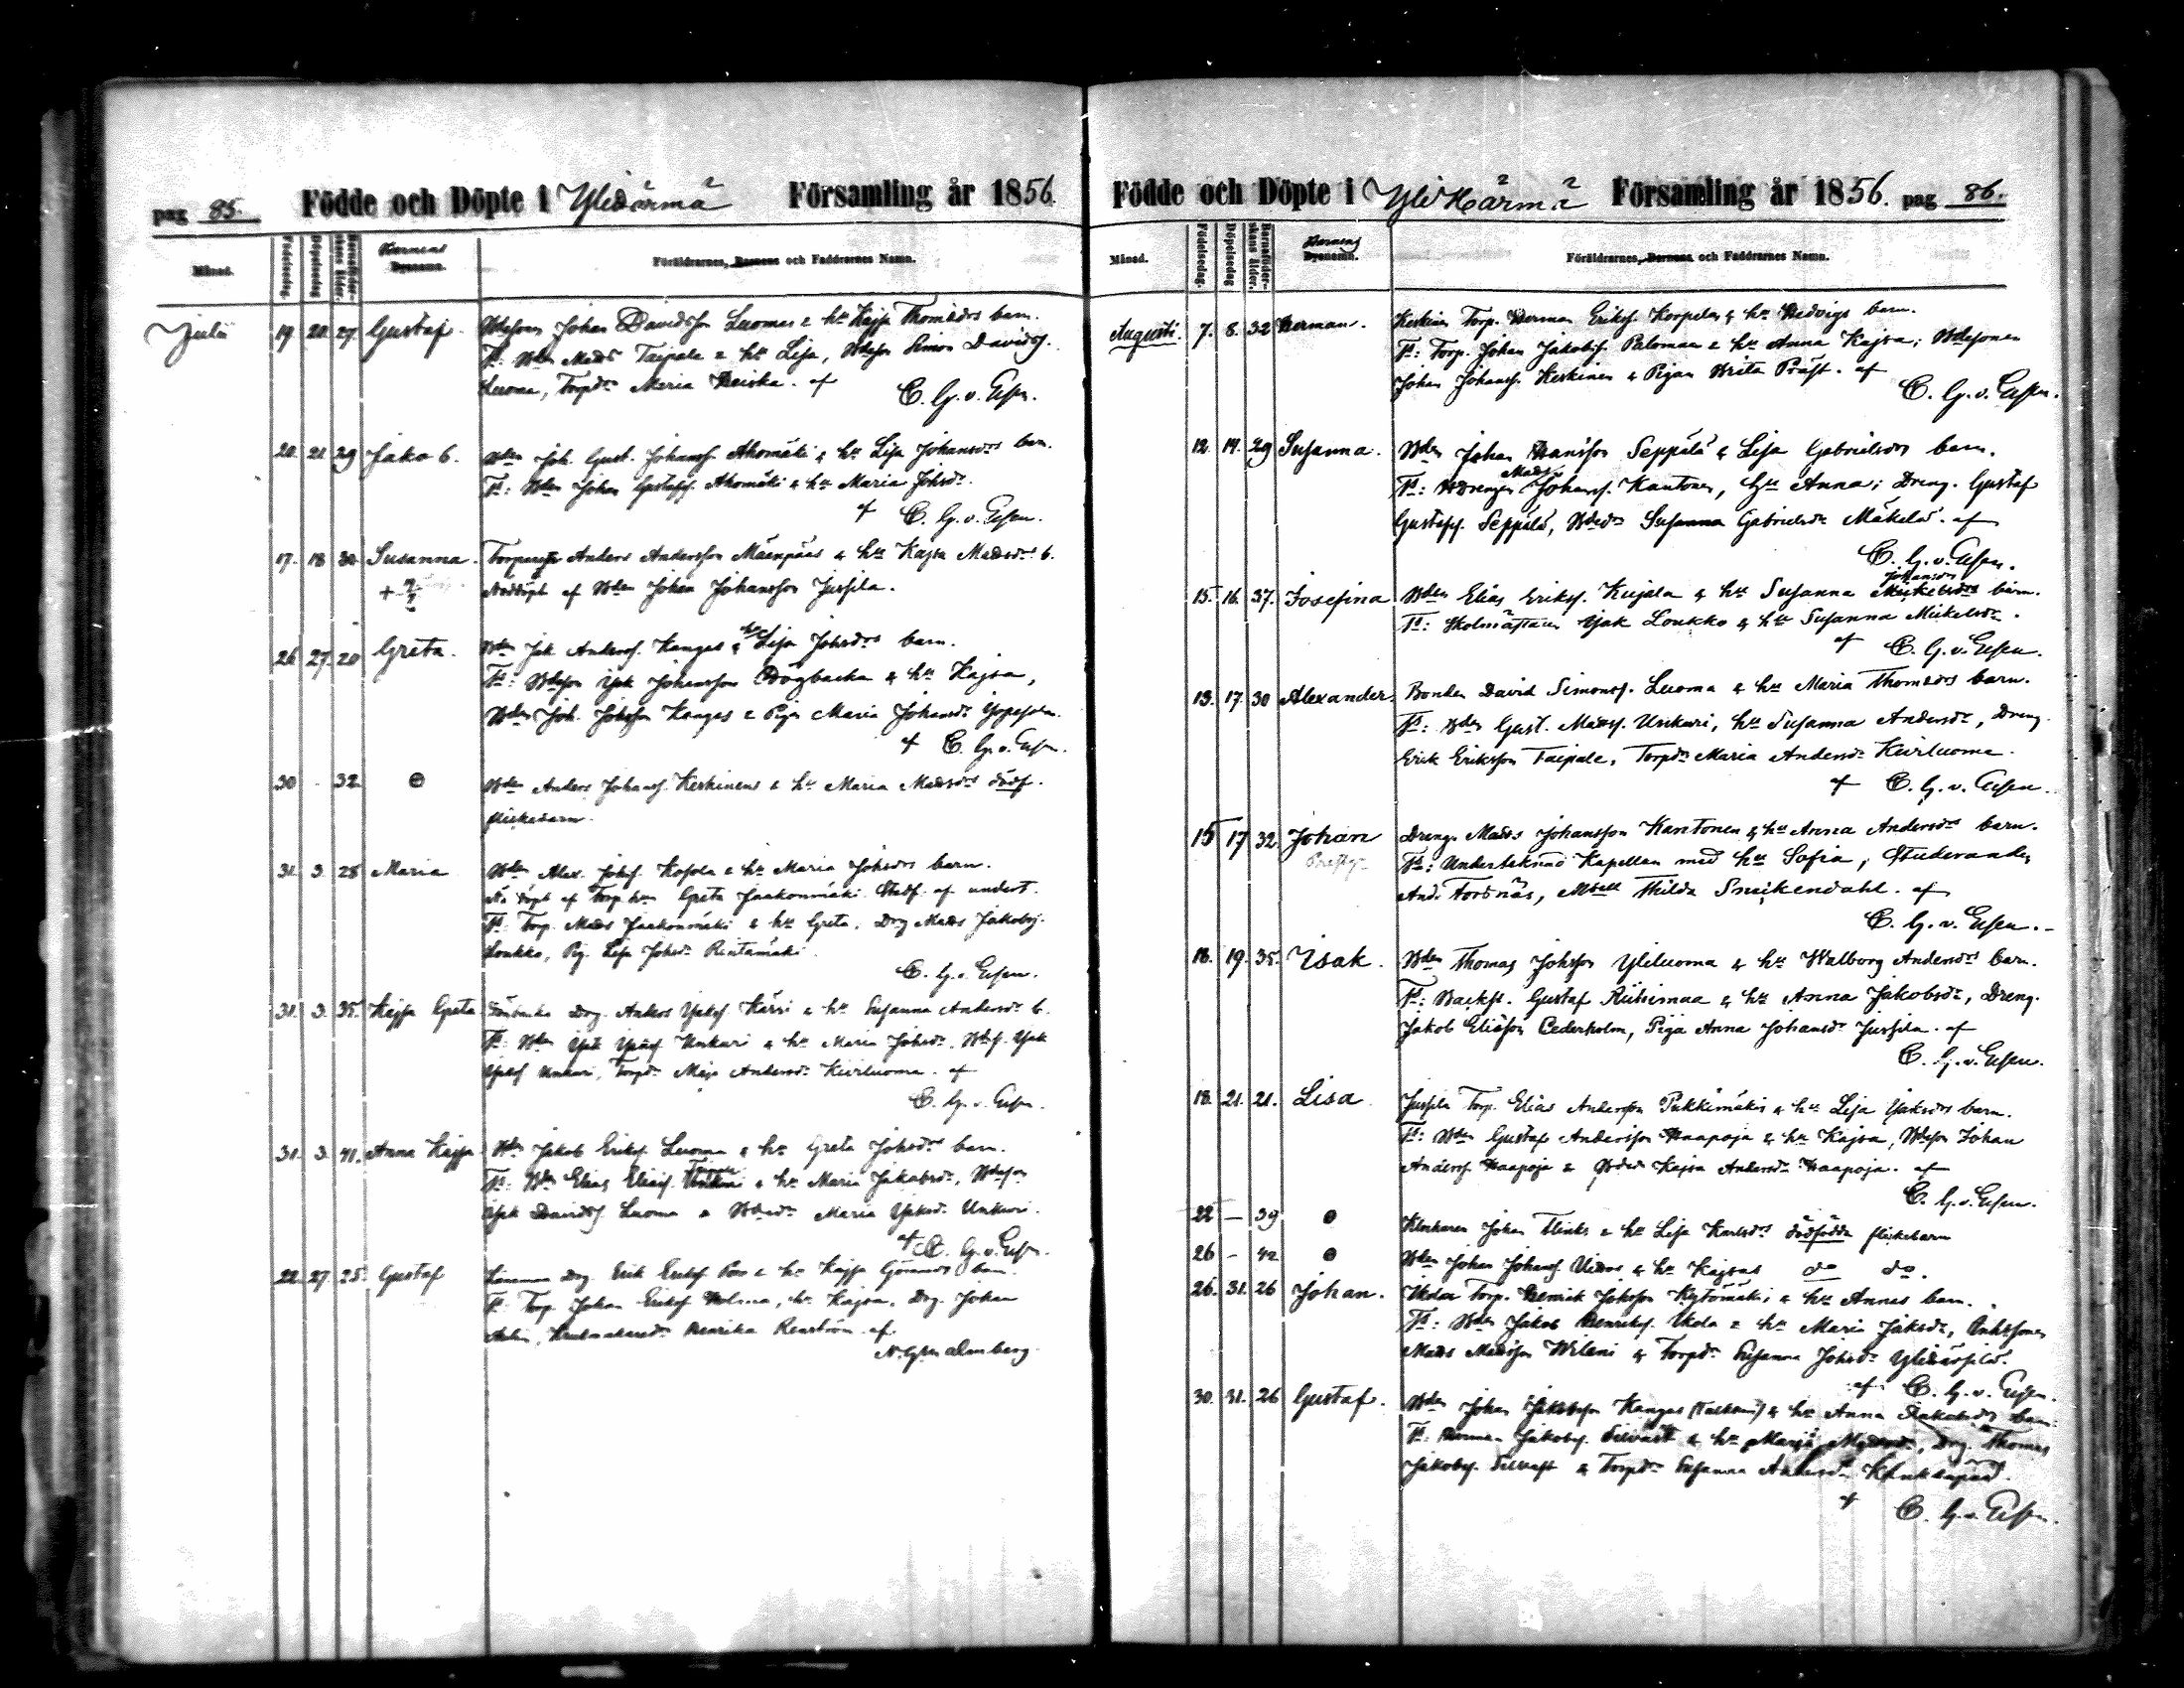 pag 85. Födde och Döpte i Ylihärmä Församling år 1856.
Månad. Födelsedag. Döpelsedag Barnaföderskans ålder. Barnens Dyanamn. Föräldrarnes, Barnens och Faddrarnes Namn.
Julii 19 20. 27. Gustaf. Bdesonen Johan Davidsson Luomas & hu Kajsa Thomædrs barn.
Ft: Bden Mads Taipale & hu Lisa, Bdeson Simon Davidss.
Luoma, Torpdr Maria
af C. G. v. Essen.
20. 21. 29 Jakob. Bden Joh. Gust. Johanss. Ahomäki & hu Lisa Johansdrs barn.
Ft: Bden Johan Gustafss. Ahomäki & hu Maria Johsdr.
af C. G. v. Essen.
17. 18 30 Susanna. Torparen Anders Andersson Mäenpääs & hu Kajsa Madsdrs b.
+ Nöddöpt af Bden Johan Johansson Jussila.
26 27. 20 Greta. Bden Jak. Anderss. Kangas & hu Lisa Johsdrs barn.
Ft: Bdeson Isak Johansson Högbacka & hu Kajsa,
Bden Joh. Johsson Kangas & Pigan Maria Johansdr
af C. G. v. Essen.
30 - 32 Bden Anders Johanss. Keskinens & hu Maria Madsdrs dödf.
flickebarn.
31. 3. 28 Maria Bden Alex. Johss. Kosola & hu Maria Johsdrs barn.
Nöddöpt af Torp.hun Greta Jaakonmäki. Stadf. af undert.
Ft: Torp. Mads Jaakonmäki & hu Greta, Drg Mads Jakobss.
Loukko, Pig. Lisa Johsdr Rintamäki.
C. G. v. Essen.
31. 3. 35. Kajsa Greta Drg. Anders Isakss. Kärri & hu Susanna Andersdrs b.
Ft: Bden Isak Isakss. Unkuri & hu Maria Johsdr, Bdes. Isak
Isakss Unkuri, Torpdr Maja Andersdr Kiviluoma. af
C. G. v. Essen.
31. 3. 41. Anna Kajsa Bden Jakob Erikss. Luoma & hu Greta Johsdrs barn.
Ft: Bden Elias Eliass. & hu Maria Jakobsdr, Bdeson
Isak Davidss. Luoma & Bdedr Maria Isaksdr Unkuri.
af C. G. v. Essen.
22. 27. 25. Gustaf Drg. Erik Erikss. & hu Kajsa barn.
Ft: Torp. Johan Erikss. Holma, hu Kajsa, Drg. Johan
Henrika Renström. af
N. G. Malmberg.
Födde och Döpte i Ylihärmä Församling år 1856. pag 86.
Månad. Födelsedag. Döpelsedag Barnaföderskans ålder. Barnens Dyanamn. Föräldrarnes, Barnens och Faddrarnes Namn.
Augusti. 7. 8. 32 Herman. Keskinen Torp. Herman Erikss. Korpelas & hu Hedvigs barn.
Ft: Torp. Johan Jakobss. Palomaa & hu Anna Kajsa; Bdesonen
Johan Johanss. Keskinen & Pigan Brita Präst. af
C. G. v. Essen.
12. 14. 29 Susanna. Bden Johan Hansson Seppälä & Lisa Gabrielsdrs barn.
Ft: Drengen Mads Johanss. Kantonen, hu Anna; Dreng. Gustaf
Gustafss. Seppälä, Bdedr Susanna Gabrielsdr Mäkelä. af
C. G. v. Essen.
15. 16. 37. Josefina Bden Elias Erikss. Kujala & hu Susanna Mickelsdrs Johansdrs barn.
Ft: Skolmästaren Isak Loukko & hu Susanna Mickelsdr.
af C. G. v. Essen.
13. 17. 30 Alexander. Bonden David Simonss. Luoma & hu Maria Thomædrs barn.
Ft: Bden Gust. Madss. Unkuri, hu Susanna Andersdr, Dreng.
Erik Eriksson Taipale, Torpdr Maria Andersdr Kiviluoma.
af C. G. v. Essen.
15 17 32. Johan Drengen Mads Johansson Kantonen & hu Anna Andersdrs barn.
Ft: Undertecknad Kapellan med hu Sofia, Studeranden
And. Tordnäs, Mll Hilda Snickendahl. af
C. G. v. Essen.
18. 19. 35. Isak. Bden Thomas Johsson Yliluoma & hu Walborg Andersdrs barn.
Ft: Backst. Gustaf Riihimaa & hu Anna Jakobsdr, Dreng.
Jakob Eliasson Cederholm, Piga Anna Johansdr Jussila. af
C. G. v. Essen.
18. 21. 21. Lisa. Jussila Torp. Elias Andersson Pukkimäkis & hu Lisa Isaksdrs barn.
Ft: Bden Gustaf Andersson Haapoja & hu Kajsa, Bdeson Johan
Anderss. Haapoja & Bdedr Kajsa Andersdr Haapoja. af
C. G. v. Essen.
22 — 39 Klockaren Johan Flinks & hu Lisa Karlsdrs dödfödda flickebarn
26 - 42 Bden Johan Johanss. & hu Kajsas do do.
26. 31. 26 Johan. Ikola Torp. Henrik Johsson Kytömäkis & hu Annas barn.
Ft: Bden Jakob Henrikss. Ikola & hu Maria Jaksdr,
Mads Madsson Wileni & Torpdr Susanna Johsdr
af C. G. v. Essen.
30. 31. 26 Gustaf. Bden Johan Jakobsson Kangas & hu Anna Jakobsdrs barn.
Ft: Herman Jakobss. Silvast & hu Maria Madsdr, Drg. Thomas
Jakobss. Silvast & Torpdr Susanna Andersdr
af C. G. v. Essen.